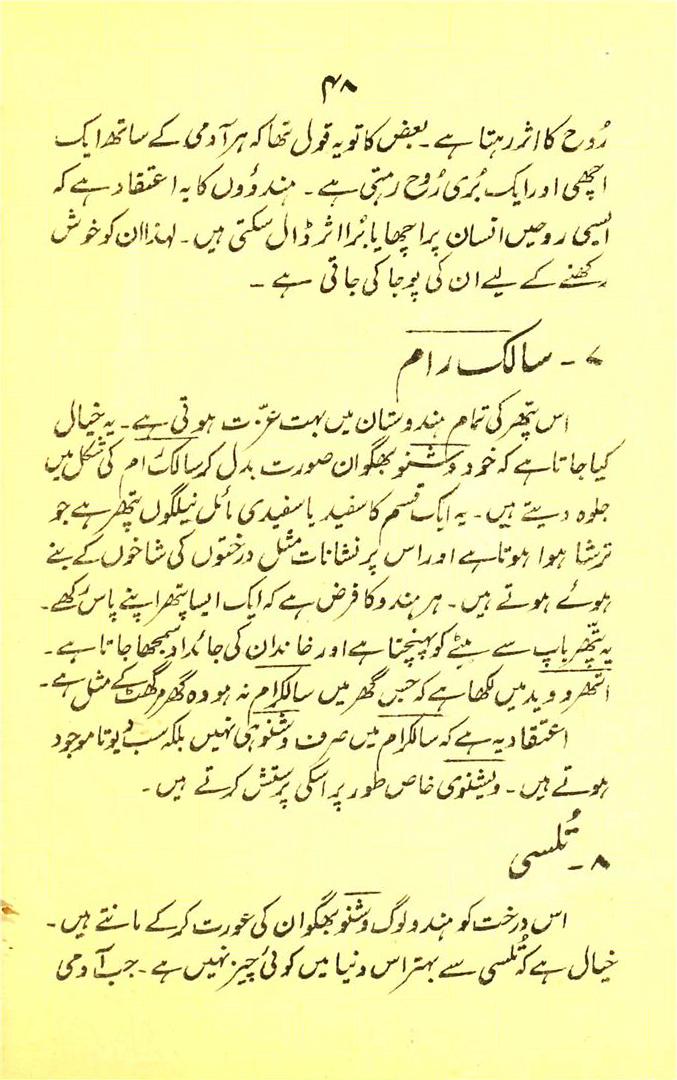 ۴۸
رُوح کا اثر رہتا ہے۔ بعض کا تو یہ قول تھا کہ ہر آدمی کے ساتھ ایک
اچھی اور ایک بُری رُوح رہتی ہے۔ ہندوؤں کا یہ اعتقاد ہے کہ
ایسی روحیں انسان پر اچھا یا بُرا اثر ڈال سکتی ہیں۔ لہذا ان کو خوش
رکھنے کے لیے ان کی پوجا کی جاتی ہے۔
۷۔ سالک رام
اس پتھر کی تمام ہندوستان میں بہت عزّت ہوتی ہے۔ یہ خیال
کیا جاتا ہے کہ خود وشنو بھگوان صورت بدل کر سالک رام کی شکل میں
جلوہ دیتے ہیں۔ یہ ایک قسم کا سفید یا سفیدی مائل نیلگوں پتھر ہے جو
ترشا ہوا ہوتا ہے اور اس پر نشانات مثل درختوں کی شاخوں کے بنے
ہوئے ہوتے ہیں۔ ہر ہندو کا فرض ہے کہ ایک ایسا پتھر اپنے پاس رکھے۔
یہ پتّھر باپ سے بیٹے کو پہنچتا ہے اور خاندان کی جائداد سمجھا جاتا ہے۔
اتھرو وید میں لکھا ہے کہ جس گھر میں سالگرام نہ ہو وہ گھر مرگھٹ کے مثل ہے۔
اعتقاد یہ ہے کہ سالگرام میں صرف وشنو ہی نہیں بلکہ سب دیوتا موجود
ہوتے ہیں۔ ویشنوی خاص طور پر اسکی پرستش کرتے ہیں۔
۸۔ تُلسی
اس درخت کو ہندو لوگ وشنو بھگوان کی عورت کر کے مانتے ہیں۔
خیال ہے کہ تُلسی سے بہتر اس دنیا میں کوئی چیز نہیں ہے۔ جب آدمی